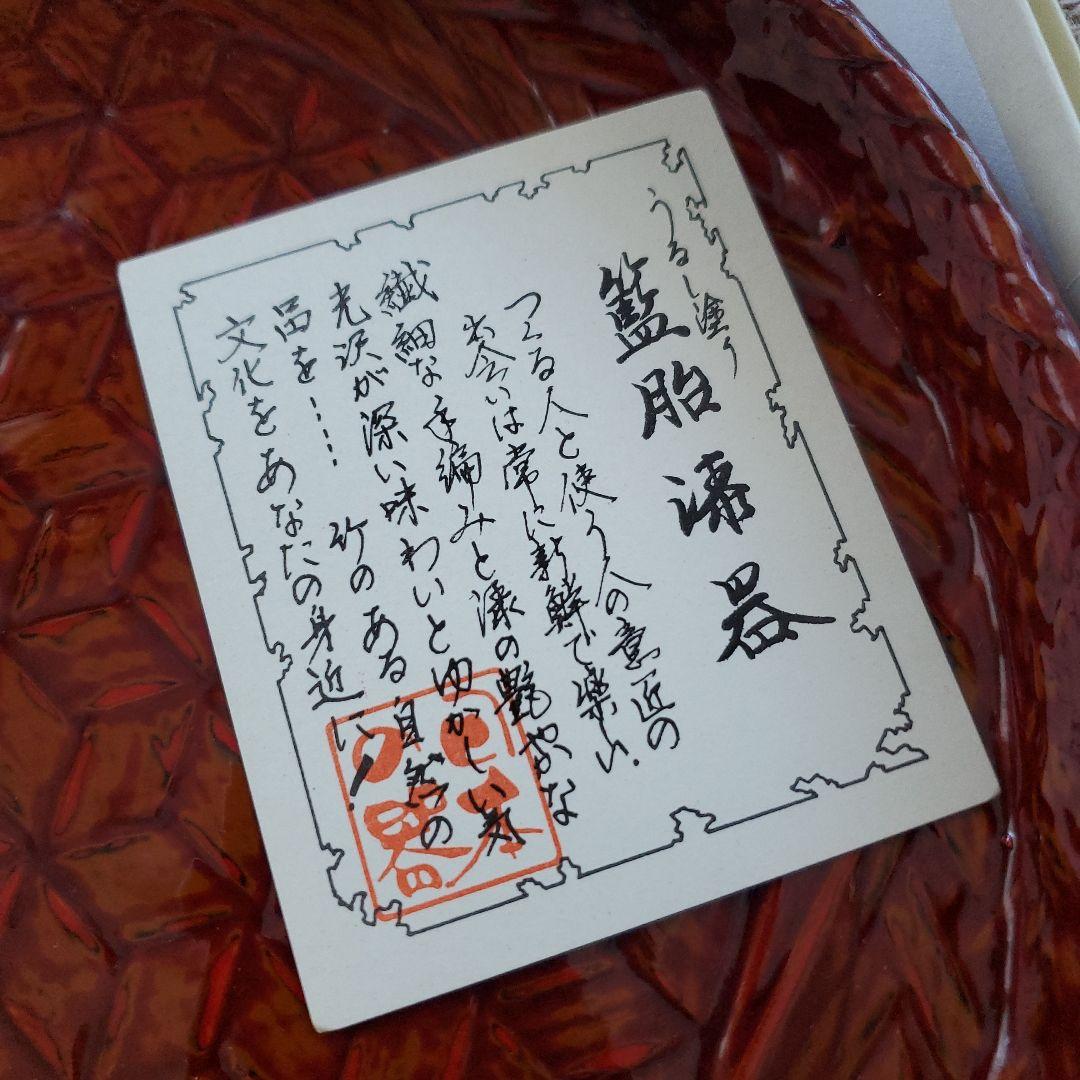 うるし塗り
籃胎漆器
つくる人と使う人の意匠の
出会いは常に新鮮で楽しい.
繊細な手編みと漆の艶やかな
光沢が深い味わいとゆかしい気
品を…… 竹のある自然の
文化をあなたの身近に!